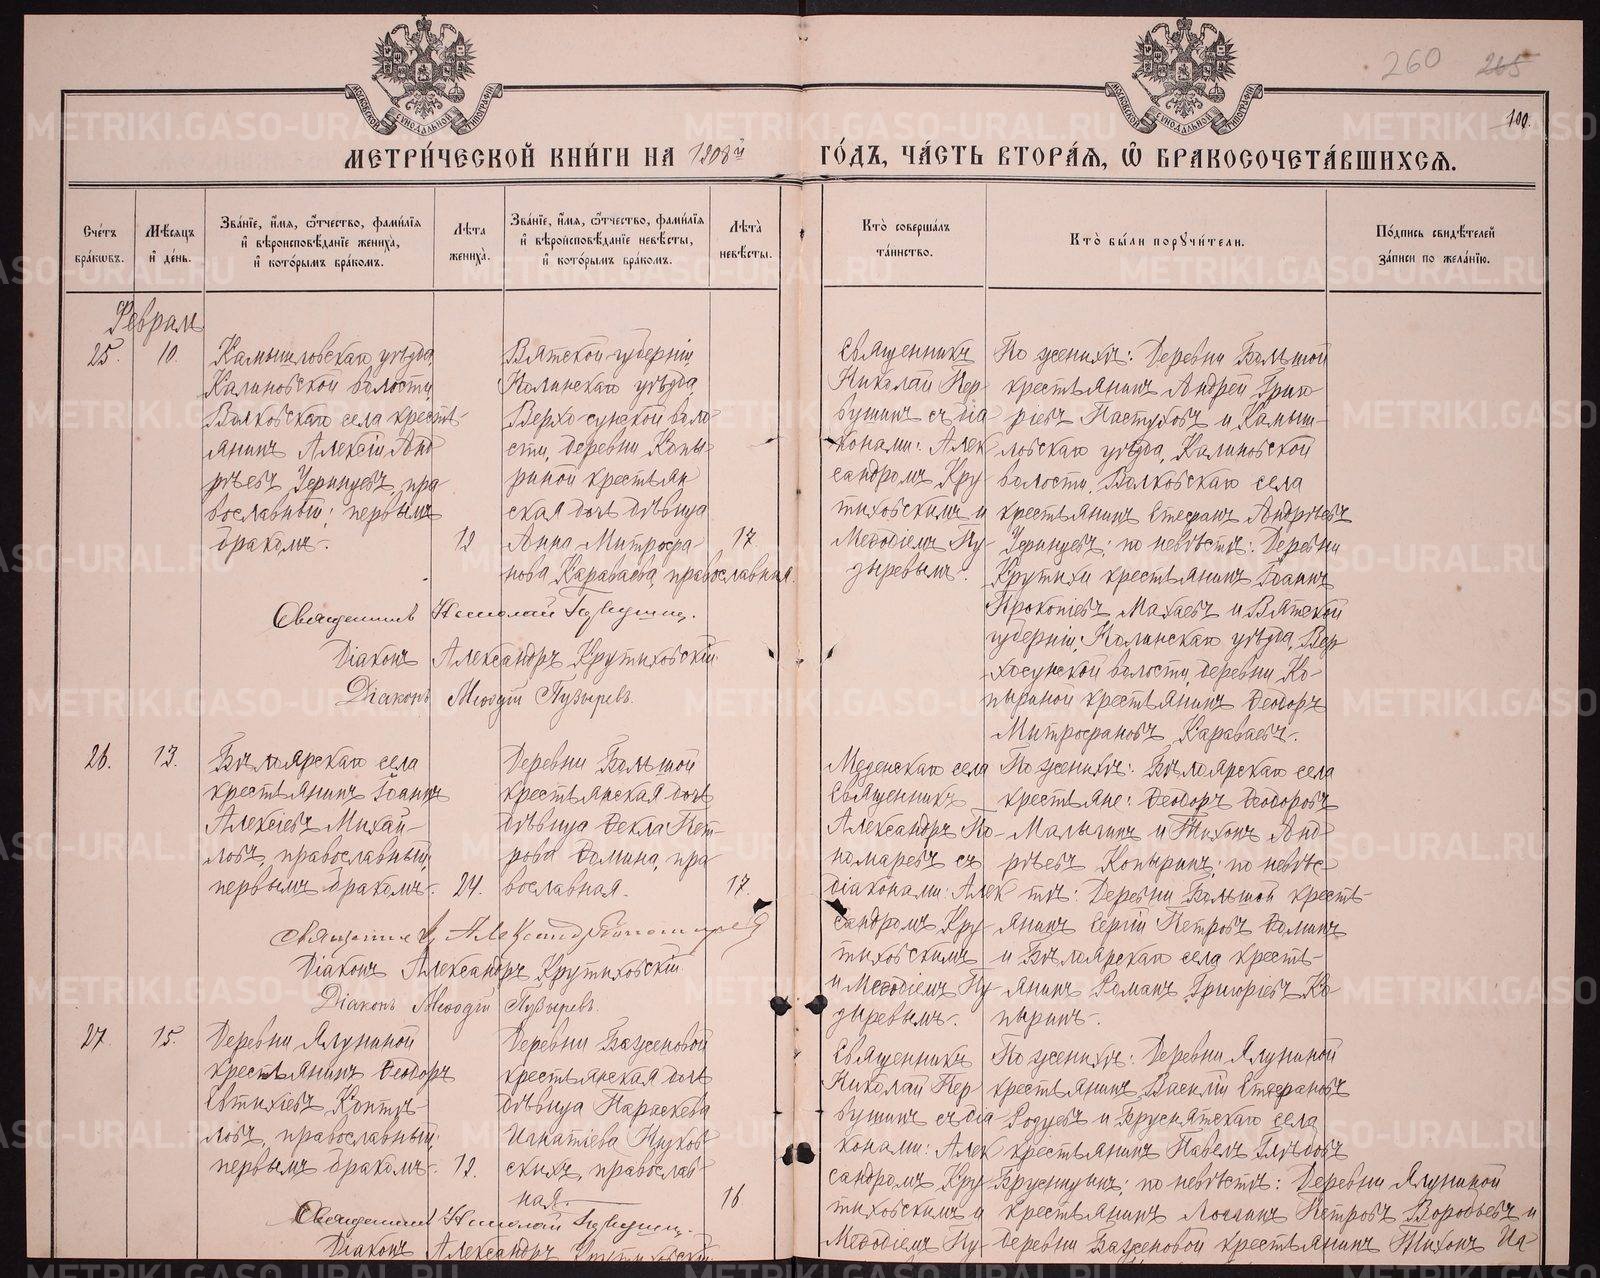 260 265
100.
МЕТРИ́ЧЕСКОЙ КНИ́ГИ НА 1908й ГО́ДЪ, ЧА́СТЬ ВТОРА́Я, Ѽ БРАКОСОЧЕТА́ВШИХСЯ.
Сче́тъ бра́кѡвъ.
Мѣ́сяцъ и́ де́нь.
Зва́нїе, и́мя, ѻ҆́тчество, фами́лїя и҆ вѣроисповѣ́данїе жениха̀, и҆ кото́рымъ бра́комъ.
Лѣ́та жениха̀.
Зва́нїе, и́мя, ѻ҆́тчество, фами́лїя и҆ вѣроисповѣ́данїе невѣ́сты, и҆ кото́рымъ бра́комъ.
Лѣта̀ невѣ́сты.
Кто̀ соверша́лъ та́инство.
Кто̀ бы́ли поручи́тели.
По́дпись свидѣ́телей за́писи по жела́нїю.
Февраль
25.
10.
Камышловскаго уѣзда,
Калиновской волости,
Волковскаго села кресть-
янинъ Алексій Анд-
рѣевъ , пра-
вославный; первымъ
бракомъ.
Вятской губерніи,
Нолинскаго уѣзда
Верхо-сунской воло-
сти, деревни Копы-
риной крестьян
ская дочь дѣвица
Анна Митрофа-
нова Караваева, православная.
17.
Священникъ
Николай Пер-
вушинъ съ діа-
конами: Алек-
сандромъ Кру-
тиховскимъ и
Меѳодіемъ Пу-
зыревымъ.
По женихѣ: Деревни Большой
крестьянинъ Андрей Григо-
рьевъ Пастуховъ и Камыш-
ловскаго уѣзда, Калиновской
волости, Волковскаго села
крестьянинъ Стефанъ Андрѣевъ
; по невѣстѣ: Деревни
Крутихи крестьянинъ Іоаннъ
Прокопіевъ Махаевъ и Вятской
губерніи, Нолинскаго уѣзда, Вер-
хосунской волости, деревни Ко-
пыриной крестьянинъ Ѳеодоръ
Митрофановъ Караваевъ.
Священникъ Николай Первушин.
Діаконъ Александръ Крутиховскій.
Діаконъ Меѳодій Пузыревъ.
26.
13.
Бѣлоярскаго села
крестьянинъ Іоаннъ
Алексіевъ Михай-
ловъ, православный,
первымъ бракомъ.
24.
Деревни Большой
крестьянская дочь
дѣвица Ѳекла Пет-
рова Ѳомина, пра-
вославная.
17.
Меденскаго села
Священникъ
Александръ По-
номаревъ съ
діаконами: Алек-
сандромъ Кру-
тиховскимъ
и Меѳодіемъ Пу-
зыревымъ.
По женихѣ: Бѣлоярскаго села
крестьяне: Ѳеодоръ Ѳеодоровъ
Малыгинъ и Тихонъ Анд-
рѣевъ Копыринъ; по невѣс-
тѣ: Деревни Большой кресть-
янинъ Сергій Петровъ Ѳоминъ
и Бѣлоярскаго села кресть-
янинъ Романъ Григорьевъ Ко-
пыринъ.
Священникъ Александръ Пономарев
Діаконъ Александръ Крутиховскій
Діаконъ Меѳодій Пузыревъ.
27.
15.
Деревни Ялуниной
крестьянинъ Ѳеодоръ
Евтихіевъ Коптѣ-
ловъ, православный;
первымъ бракомъ.
Деревни Баженовой
крестьянская дочь
дѣвица Параскева
Игнатіева
скихъ, православ-
ная.
16
Священникъ
Николай Пер-
вушинъ съ діа-
конами: Алек-
сандромъ Кру-
тиховскимъ и
Меѳодіемъ Пу-
По женихѣ: Деревни Ялуниной
крестьянинъ Василій Стефановъ
и Бруснятскаго села
крестьянинъ Павелъ Глѣбовъ
Брусницынъ; по невѣстѣ: Деревни Ялуниной
крестьянинъ Логгинъ Петровъ Воробьевъ и
деревни Баженовой крестьянинъ Тихонъ Иг
Священникъ Николай Первушин.
Діаконъ Александръ Крутиховскій
METRIKI.GASO-URAL.RU